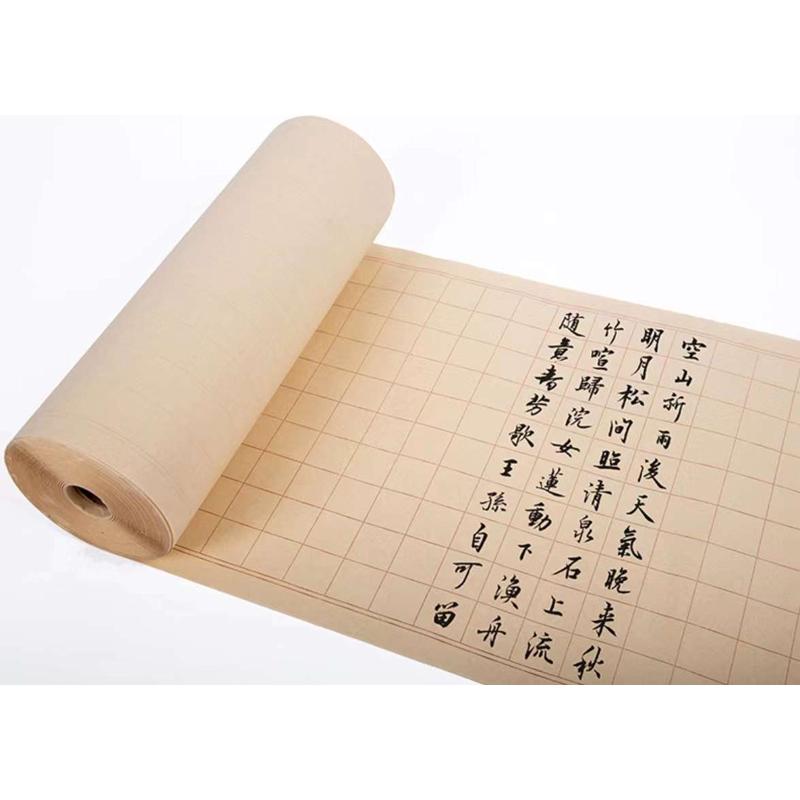 空山新雨後天氣晚来秋
明月松间照清泉石上流
竹喧歸浣女蓮動下漁舟
随意春芳歇王孫自可留